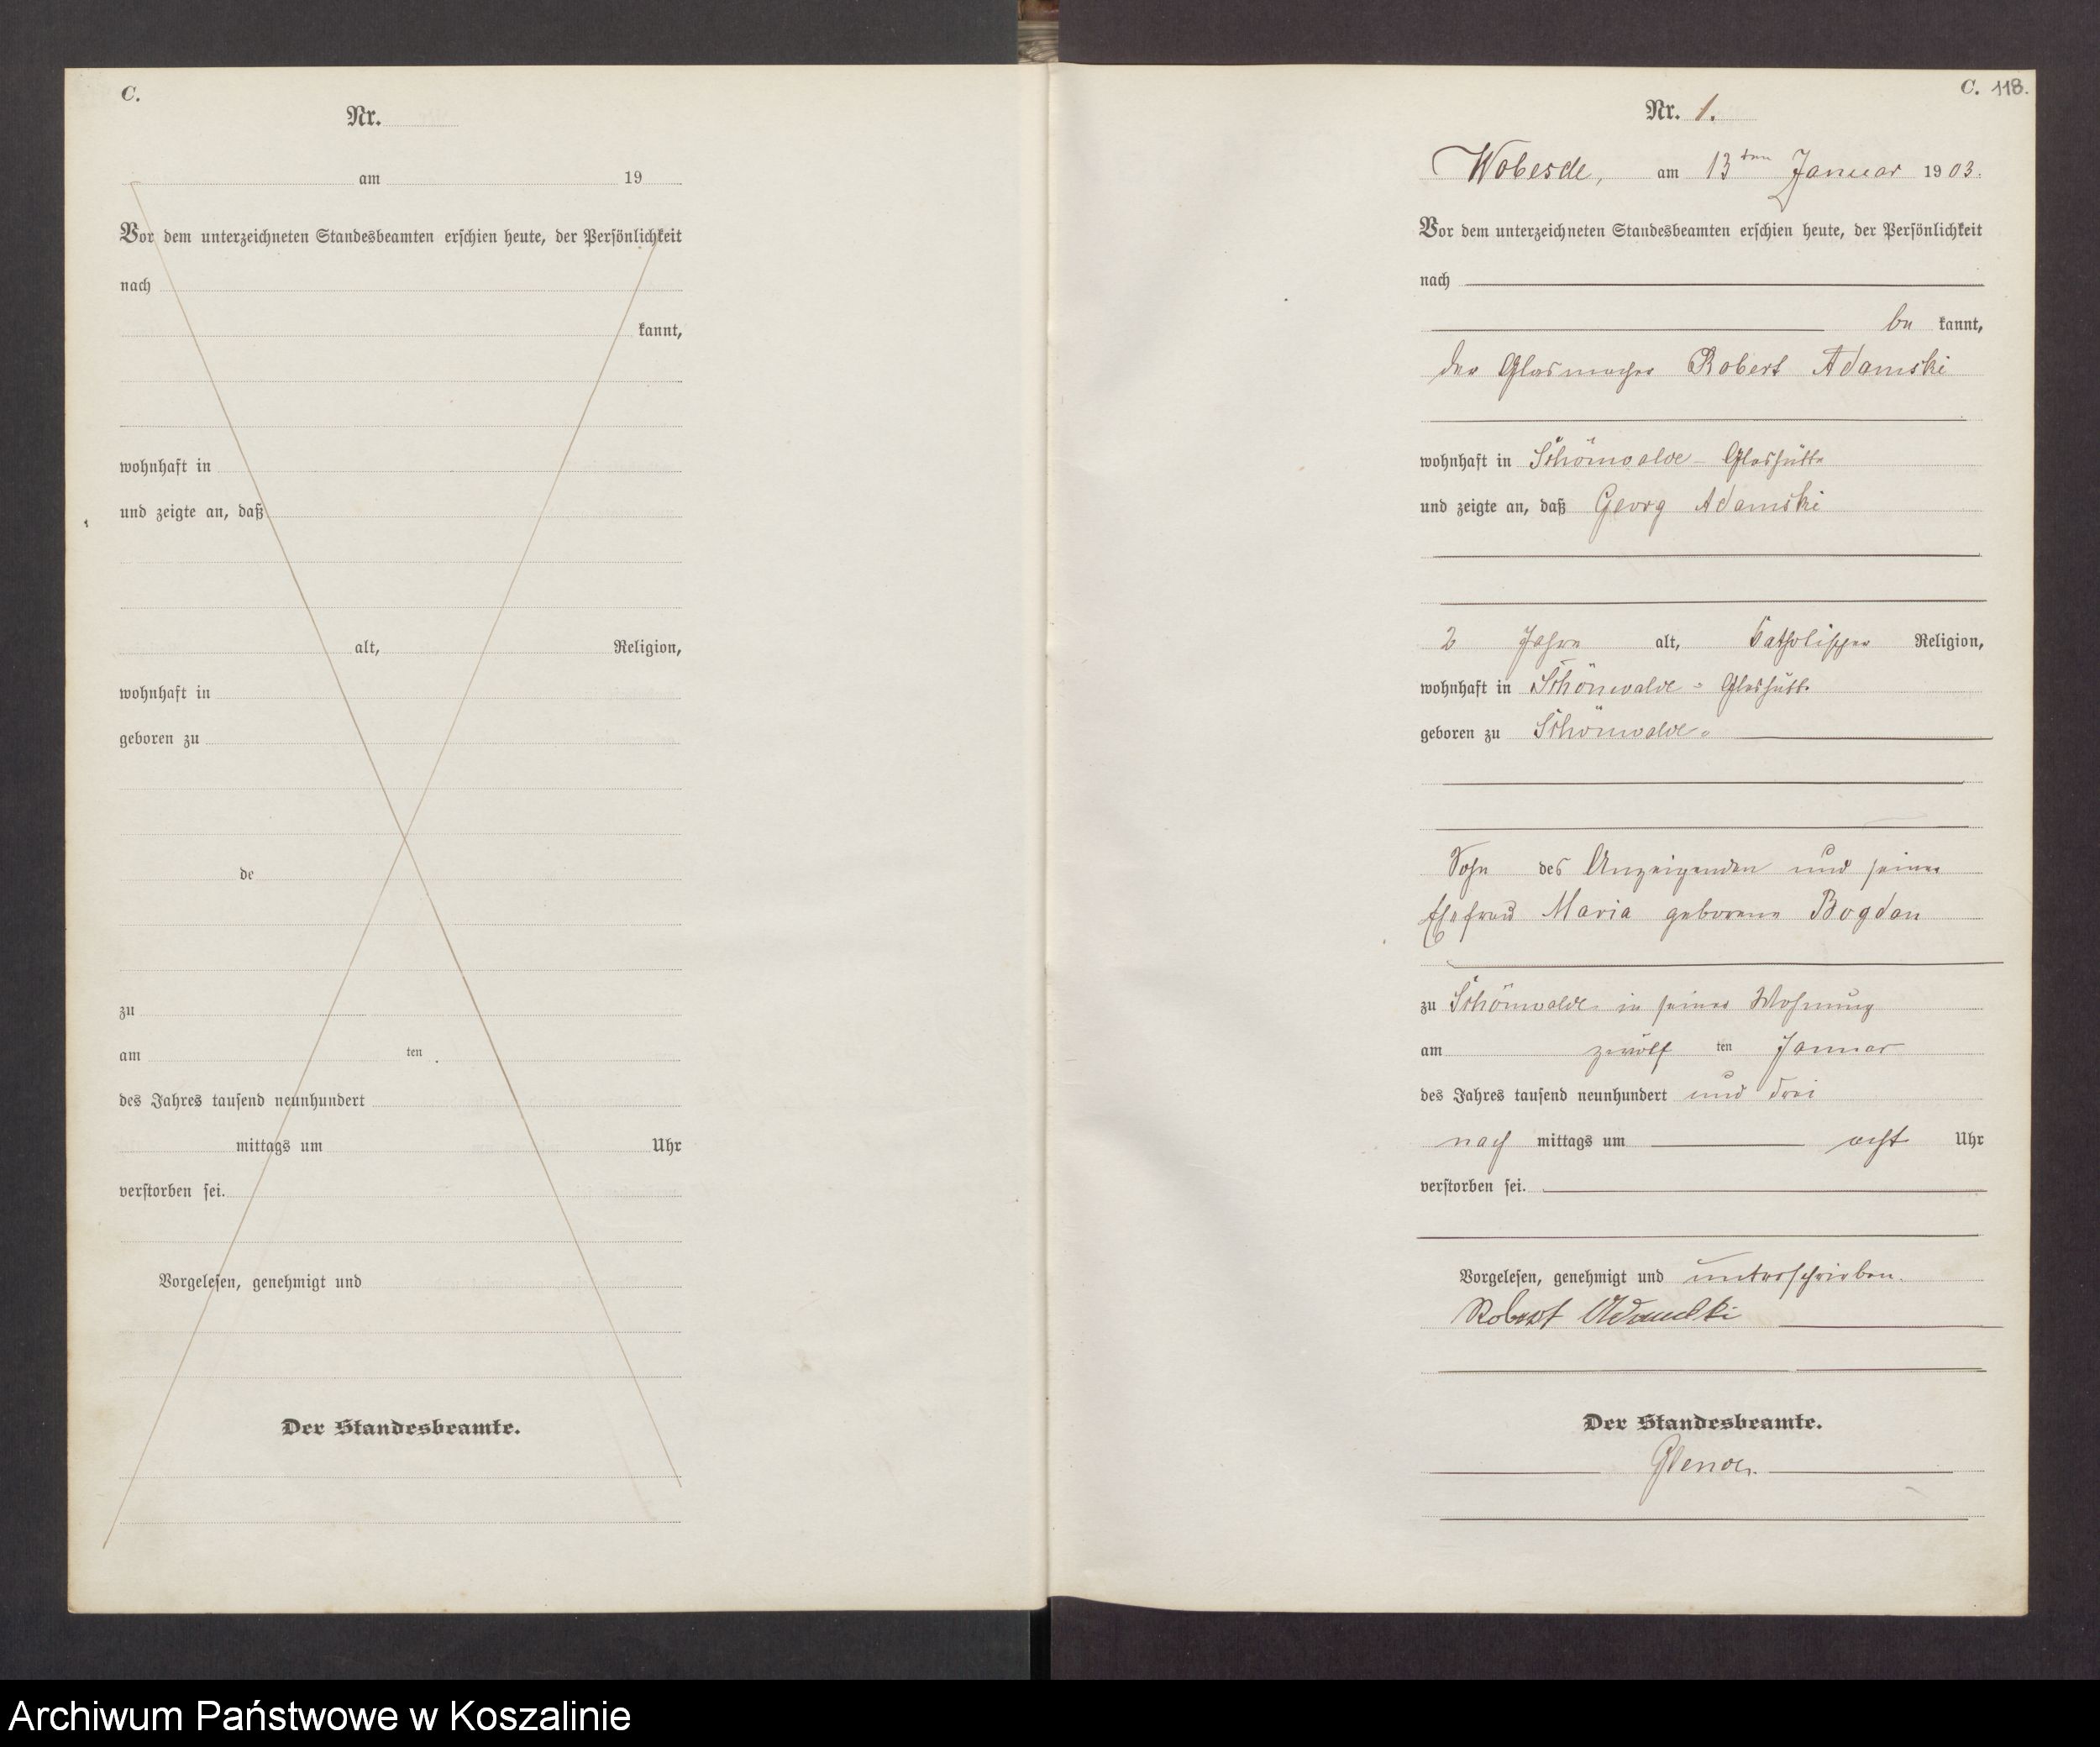 C.
Nr.
am 19
Vor dem unterzeichneten Standesbeamten erschien heute, der Persönlichkeit
nach
kannt,
wohnhaft in
und zeigte an, daß
alt, Religion,
wohnhaft in
geboren zu
de
zu
am ten
des Jahres tausend neunhundert
mittags um Uhr
verstorben sei.
Vorgelesen, genehmigt und
Der Standesbeamte.
C. 118.
Nr. 1.
Wobesde, am 13ten Januar 1903.
Vor dem unterzeichneten Standesbeamten erschien heute, der Persönlichkeit
nach
be kannt,
der Glasmacher Robert Adamski
wohnhaft in Schönwalde-Glashütte
und zeigte an, daß Georg Adamski
2 Jahre alt, katholischer Religion,
wohnhaft in Schönwalde-Glashütte
geboren zu Schönwalde.
Sohn des Anzeigenden und seiner
Ehefrau Maria geborene Bogdan
zu Schönwalde in seiner Wohnung
am zwölf ten Januar
des Jahres tausend neunhundert und drei
nach mittags um acht Uhr
verstorben sei.
Vorgelesen, genehmigt und unterschrieben.
Robert Adamski
Der Standesbeamte.
Archiwum Państwowe w Koszalinie